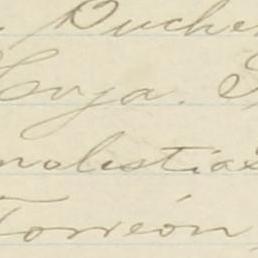 Puche
Hoja.
molestias
Torreón,